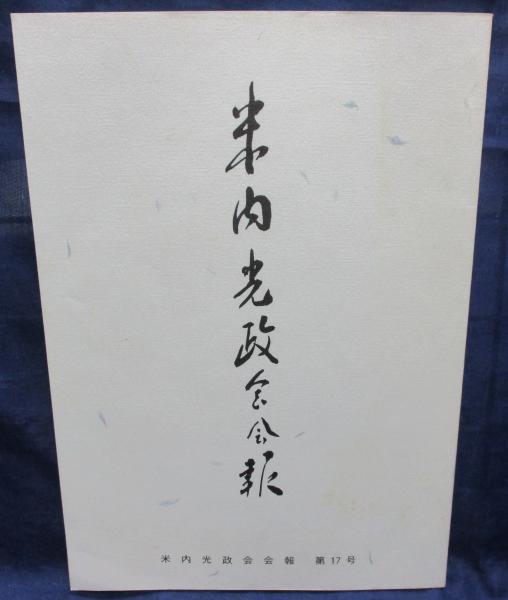 米内光政会会報
米内光政会会報 第17号